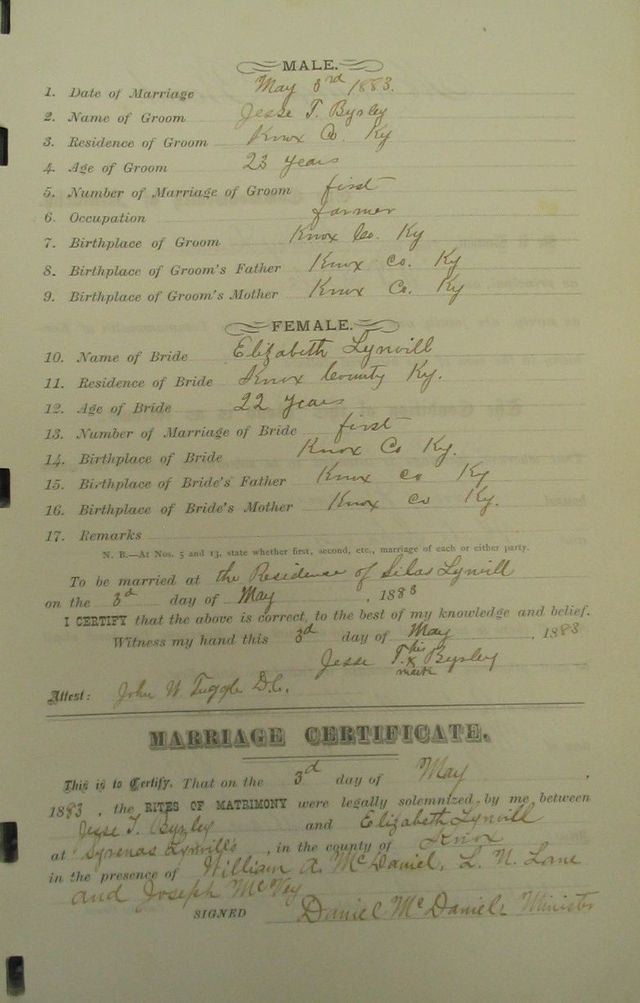 MALE.
1. Date of Marriage May 3rd 1883.
2. Name of Groom Jesse T. Bysley
3. Residence of Groom Knox Co. Ky
4. Age of Groom 23 years
5. Number of Marriage of Groom first
6. Occupation farmer
7. Birthplace of Groom Knox Co. Ky
8. Birthplace of Groom's Father Knox Co. Ky
9. Birthplace of Groom's Mother Knox Co. Ky
FEMALE.
10. Name of Bride Elizabeth Lynvill
11. Residence of Bride Knox County Ky.
12. Age of Bride 22 years
13. Number of Marriage of Bride first
14. Birthplace of Bride Knox Co Ky.
15. Birthplace of Bride's Father Knox co Ky
16. Birthplace of Bride's Mother Knox co Ky.
17. Remarks
N. B.—At Nos. 5 and 13, state whether first, second, etc., marriage of each or either party.
To be married at the Residence of Silas Lynvill
on the 3d day of May, 1883
I CERTIFY that the above is correct, to the best of my knowledge and belief.
Witness my hand this 3d day of May, 1883
Jesse T. his x mark Bysley
Attest: John W. Tuggle D.C.
MARRIAGE CERTIFICATE.
This is to Certify, That on the 3d day of May,
1883, the RITES OF MATRIMONY were legally solemnized by me between
Jesse T. Byzley and Elizabeth Lynvill
at Syrenas Lynvill's, in the county of Knox
in the presence of William A. McDaniel, L. N. Lane
and Joseph McVey
SIGNED Daniel McDaniel Minister